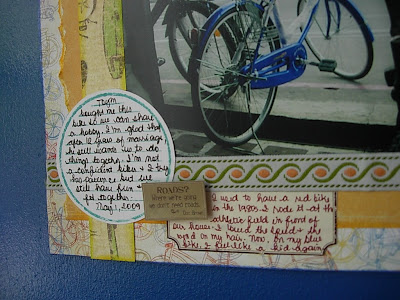 bought me this
bike so we can share
a hobby. I'm glad that
after 12 years of marriage
he still wants us to do
things together. I'm not
a confident biker & I try
his patience but we
still have fun &
together.
May 1, 2009
ROADS?
Where we're going
we don't need roads.
I used to have a red bike
in the 1980s. I rode it at the
athletic field in front of
our house. I loved the speed & the
wind on my hair. Now, on my blue
bike, I feel like a kid again.